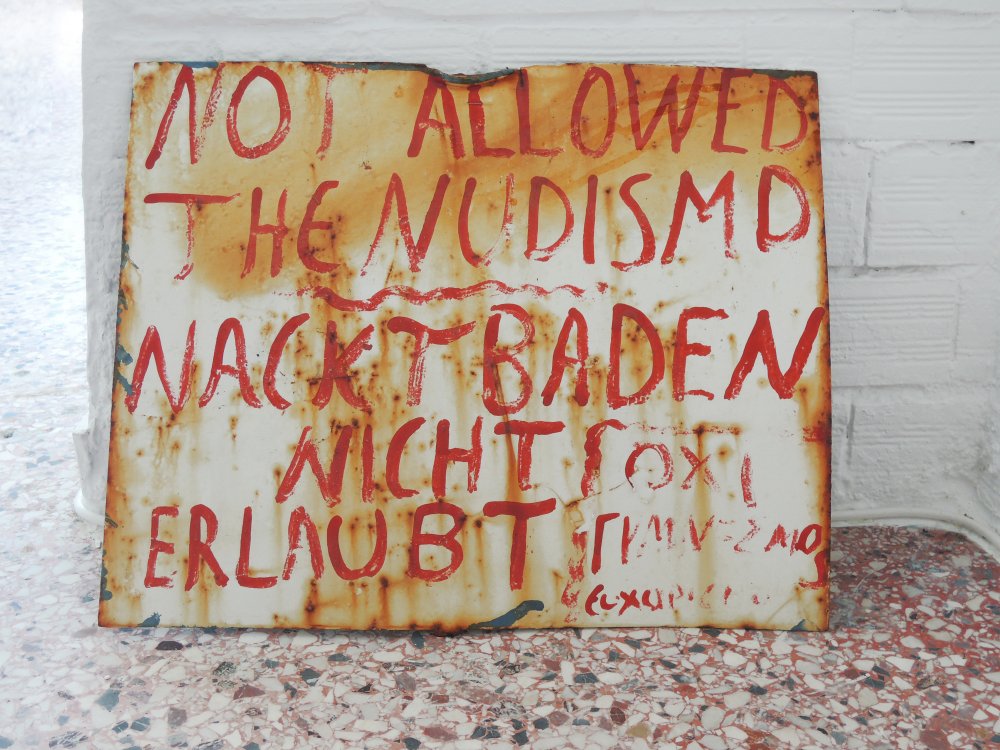 NOT ALLOWED
THE NUDISMD
NACKT BADEN
NICHT
ERLAUBT
ΟΧΙ